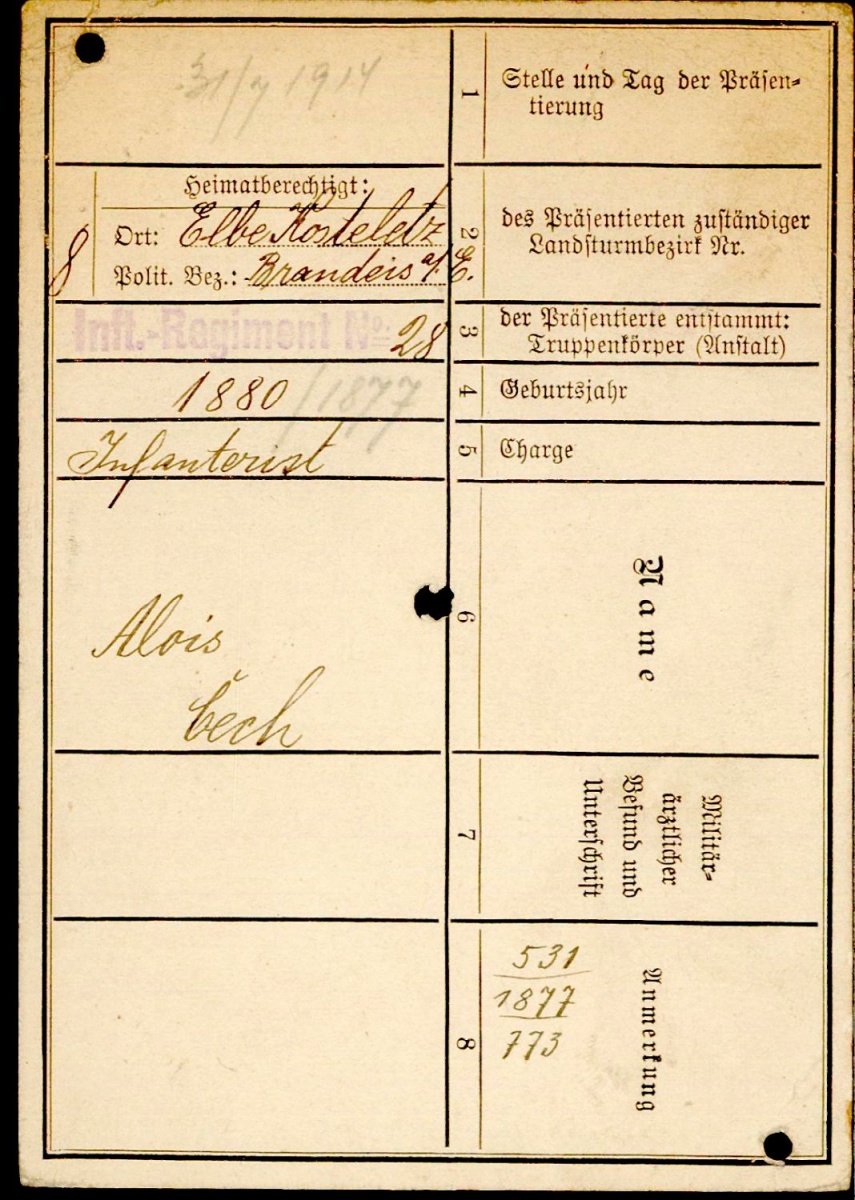 31/7 1914
1
Stelle und Tag der Präsen-
tierung
Heimatberechtigt:
8
Ort: Elbe Kosteletz
Polit. Bez.: Brandeis a/E.
2
des Präsentierten zuständiger
Landsturmbezirk Nr.
Inft.-Regiment No: 28
3
der Präsentierte entstammt:
Truppenkörper (Anstalt)
1880 / 1877
4
Geburtsjahr
Infanterist
5
Charge
Alois
Čech
6
Name
7
Militär-
ärztlicher
Befund und
Unterschrift
8
Anmerkung
531
1877
773